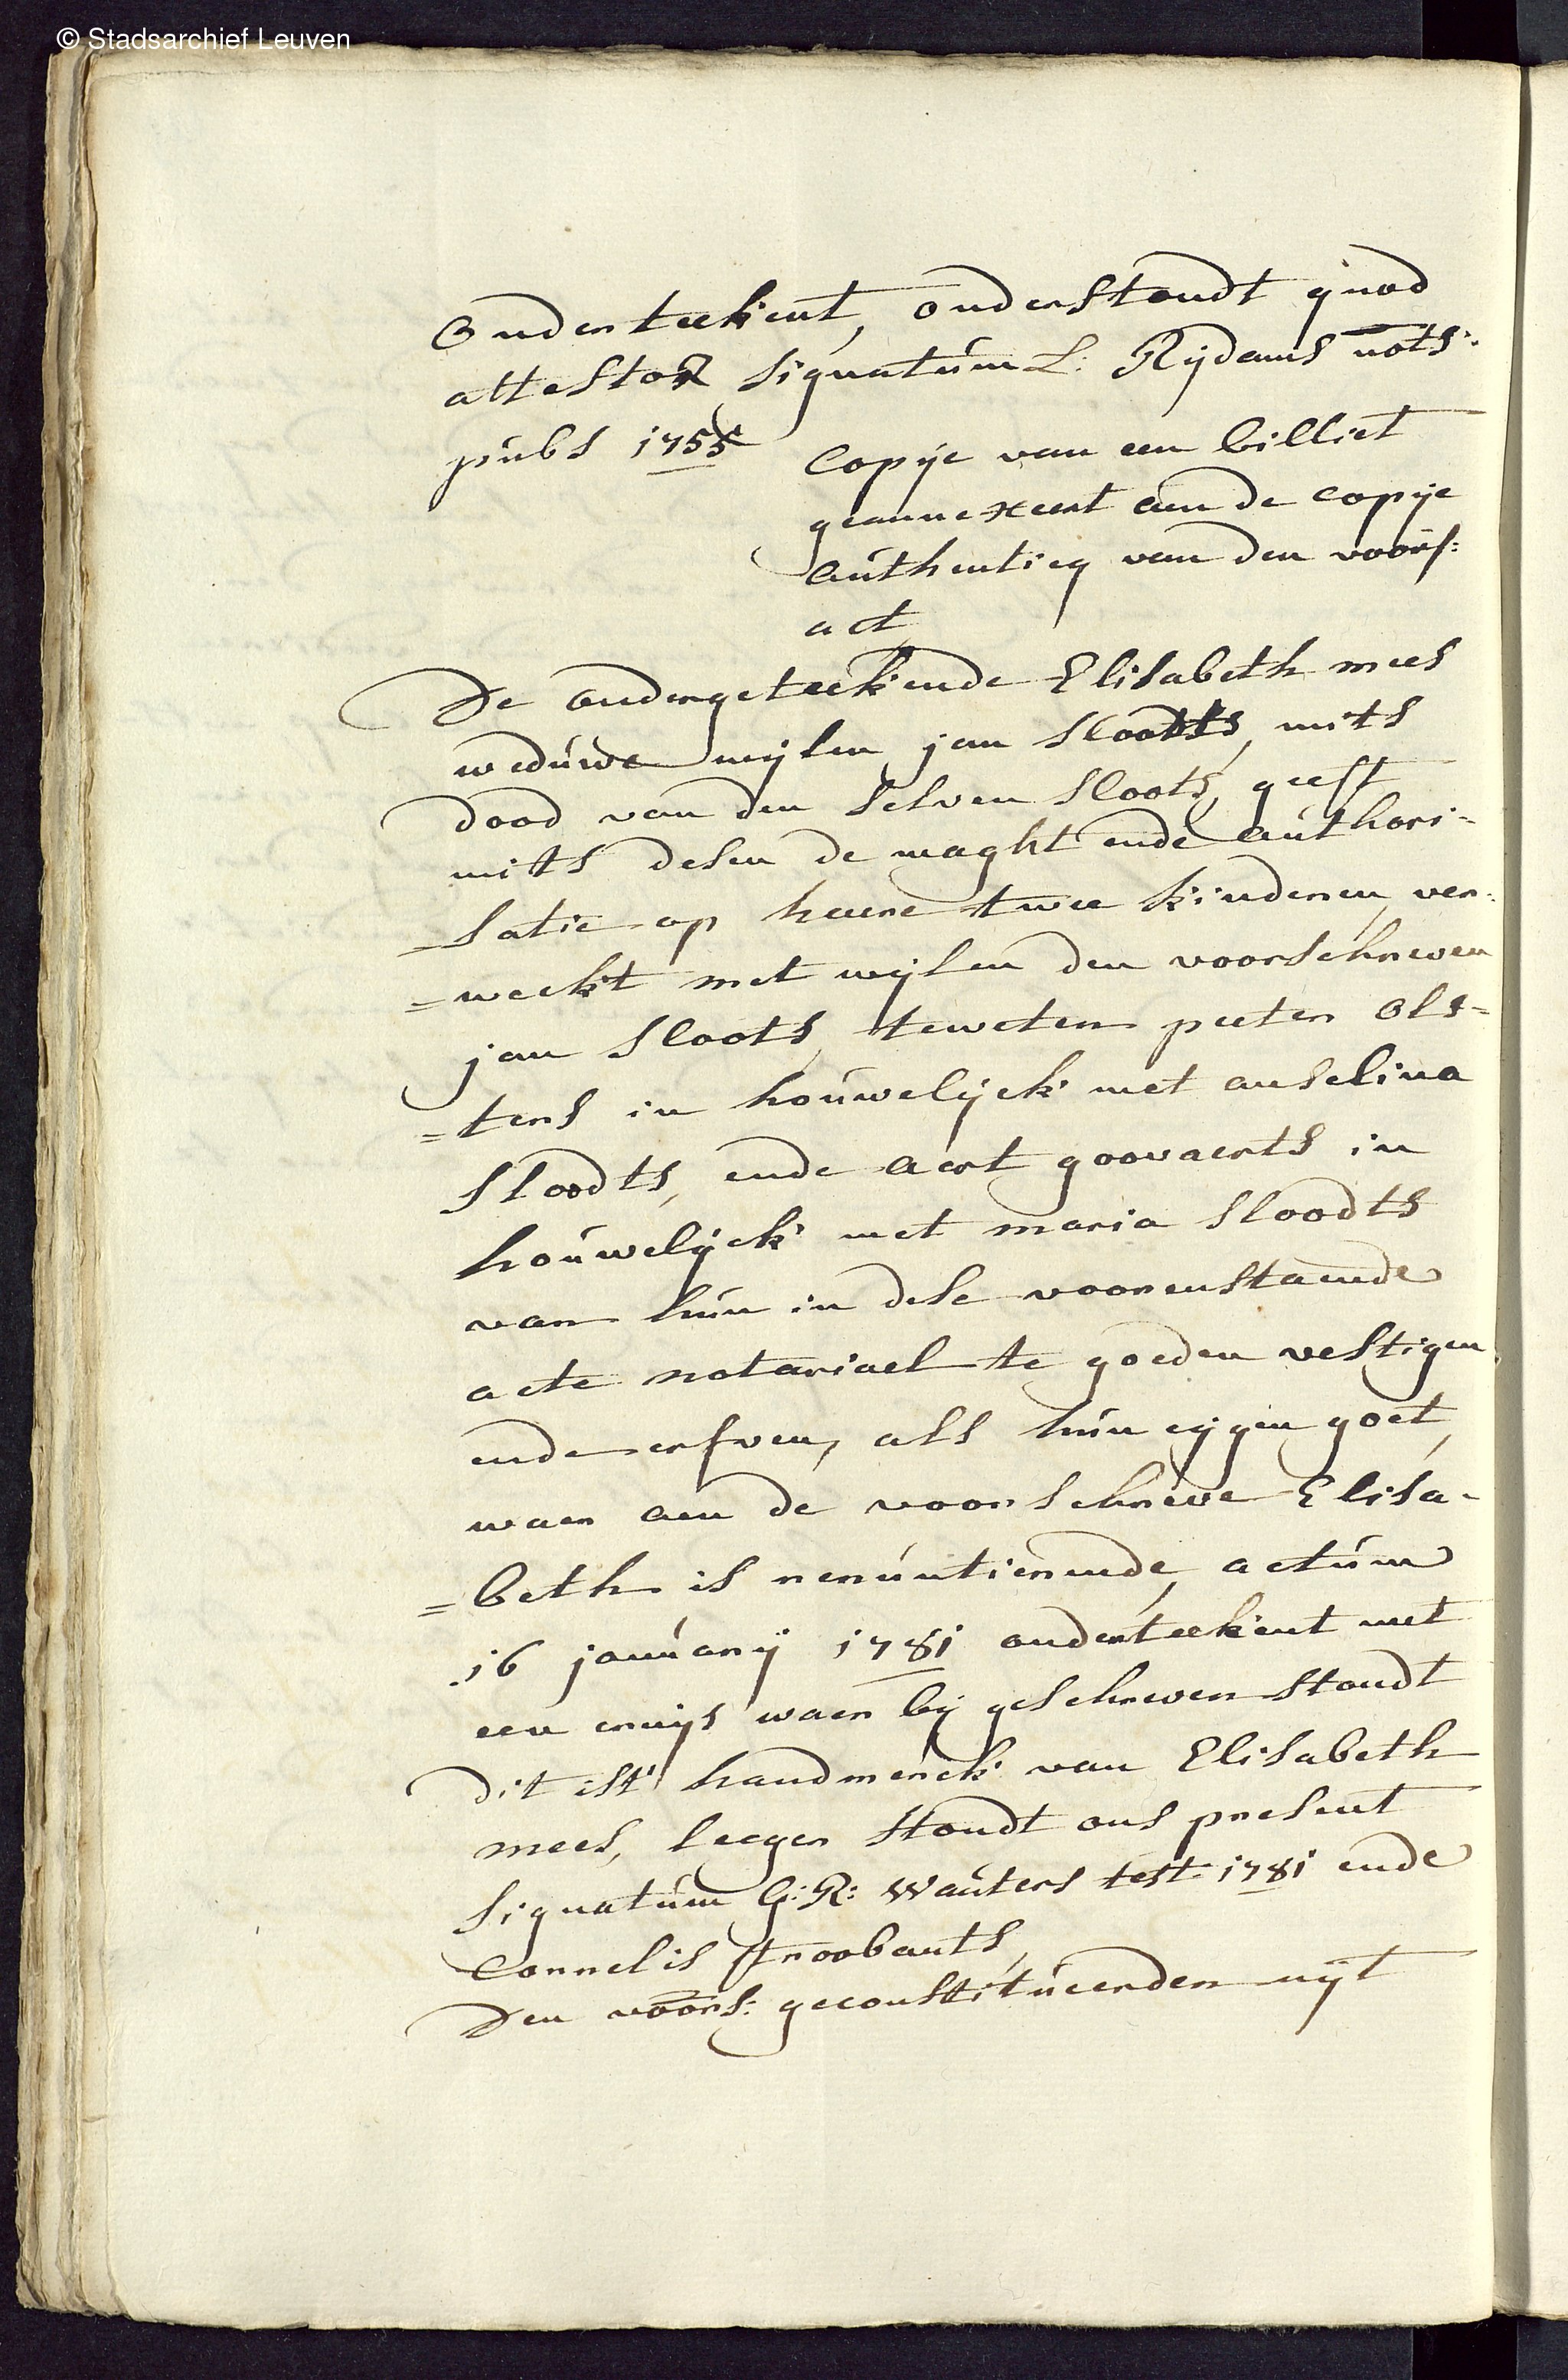 © Stadsarchief Leuven
onderteekent, onderstondt quod
attestor signatúm L: Rijdams nots:
púbs 1755
Copije van een billiet
geannexeert aen de copije
aúthentieq van den voors:
act
De ondergeteekende Elisabeth mees
wedúwe wijlen jan Sloodts, mits
dood van den selven Sloots, geeft
mits desen de maght ende aúthori-
=satie op haere twee kinderen, ver-
=weckt met wijlen den voorschreven
jan Sloots, teweten peeter Ols-
=ters in hoúwelijck met anselina
Sloodts, ende aert goovaerts in
hoúwelijck met maria Sloodts
van hún in dese voorenstaende
acte notariael te goeden vestigen
ende erfven, als hún eijgen goet,
waer aen de voorschreve Elisa-
=beth is renúntierende, actúm
16 janúarij 1781 onderteekent met
een cruijs waer bij geschreven stondt
dit ist' handmerck van Elisabeth
mees, leeger stondt ons present
signatúm G: R: Waúters test: 1781 ende
Cornelis stroobants,
Den voors: geconstitúeerden uijt